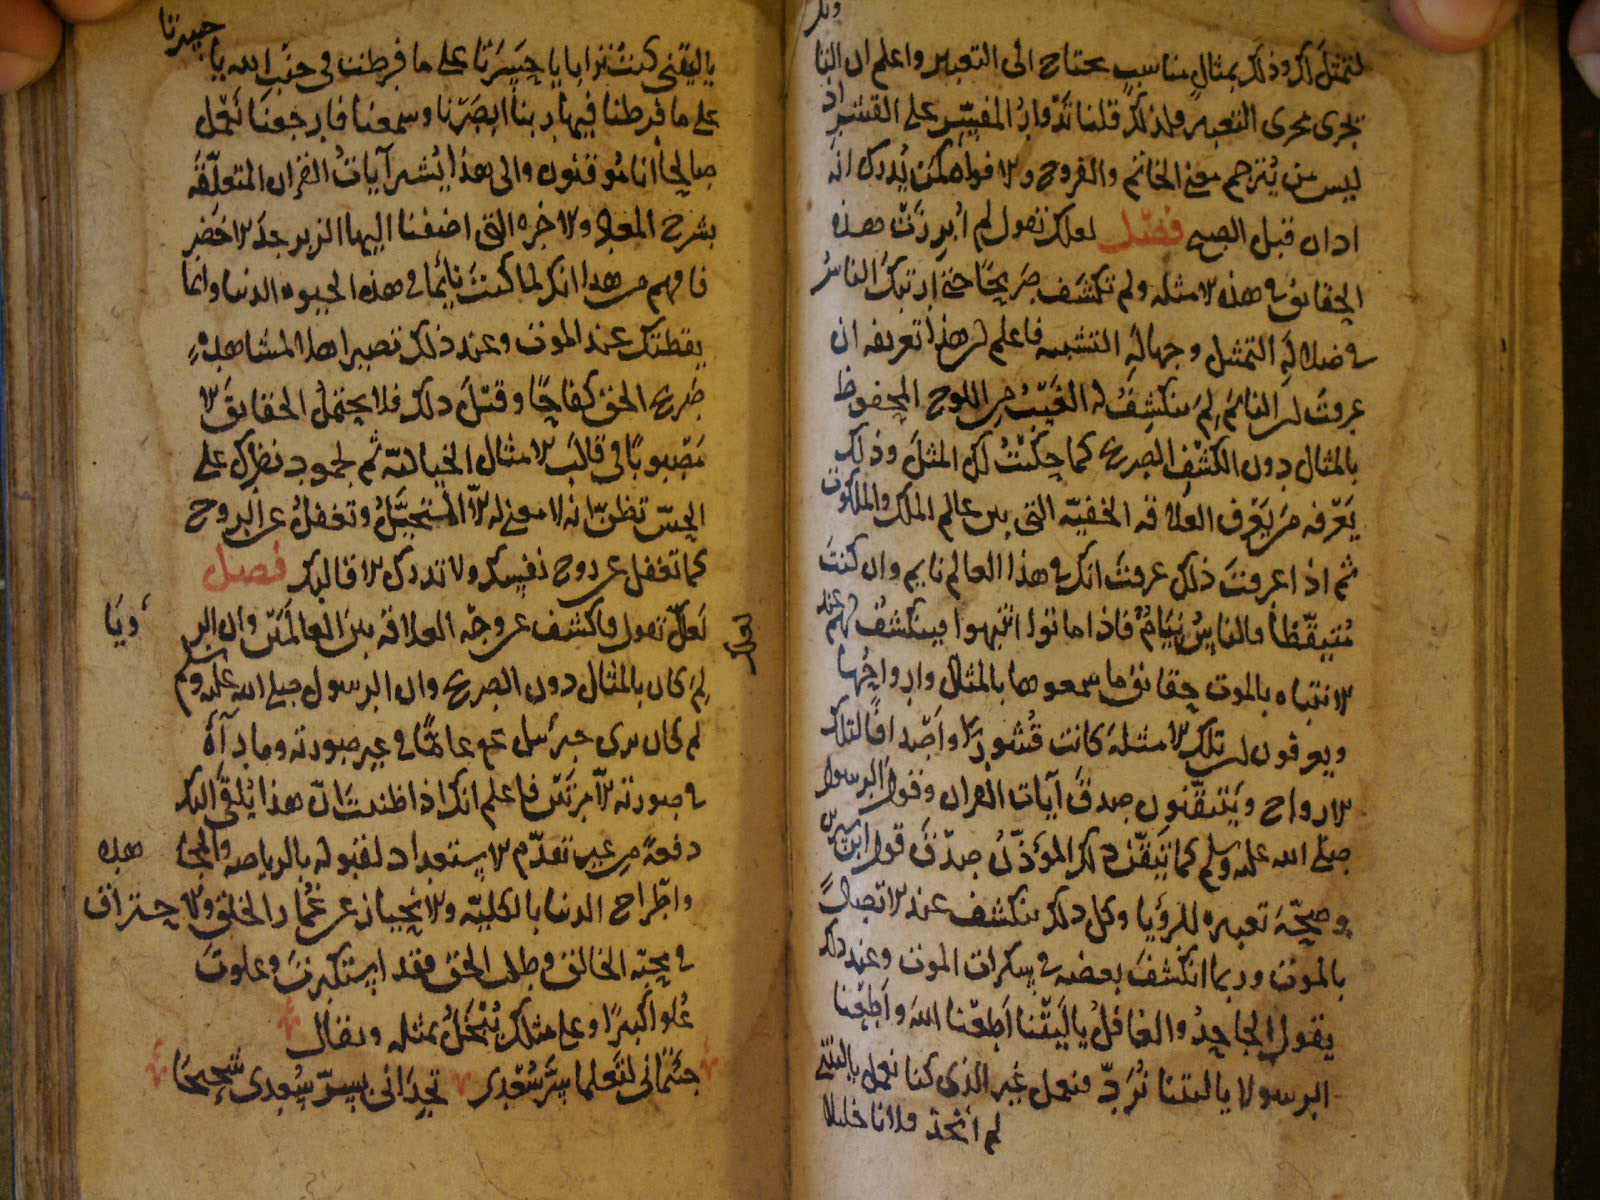 لتمثل لك وذلك بمثال مناسب يحتاج الى التعبير واعلم ان التا
تجري مجرى التعبير فلذلك قلنا تدوار المفسر على القشر اذ
ليس من يترجم معنى الخاتم والفروج والافواه كمن يدرك انه
اذان قبل الصبح فصل لعلك تقول لم ابرزت هذه
الحقايق في هذه الامثله ولم تكشف صريحا حتى ارتبك الناس
في ضلالة التمثل وجهالة التشبيه فاعلم ان هذا تعرفه ان
عرفت ان النائم لم ينكشف له الغيب من اللوح المحفوظ
بالمثال دون الكشف الصريح كما حكيت لك المثل وذلك
يعرفه من يعرف العلاقه الخفيه التي بين عالم الملك والملكوت
ثم اذا عرفت ذلك عرفت انك في هذا العالم نايم وان كنت
متيقظا فالناس نيام فاذا ماتوا انتبهوا فينكشف لهم عند
الانتباه بالموت حقائق ما سمعوها بالمثال وارواحها
ويعرفون ان تلك الامثلة كانت قشورا واصدافا لتلك
الارواح ويتيقنون صدق آيات القران وقول الرسول
صلى الله عليه وسلم كما تيقن ذلك المؤذن صدق قول ابن سيرين
وصحة تعبيره للرؤيا وكل ذلك ينكشف عند الاتصال
بالموت وربما انكشف بعضه في سكرات الموت وعند ذلك
يقول الجاحد والغافل يا ليتنا اطعنا الله واطعنا
الرسولا يا ليتنا نرد فنعمل غير الذي كنا نعمل يا ليتني
لم اتخذ فلانا خليلا
يا ليتني كنت ترابا يا حسرتا على ما فرطت في جنب الله يا حسرتنا
على ما فرطنا فيها ربنا ابصرنا وسمعنا فارجعنا نعمل
صالحا انا موقنون والى هذا يشير آيات القران المتعلقة
بشرح المعاد والاخره التي اضفنا اليها الزبرجد الاخضر
فافهم من هذا انك لما كنت نائما في هذه الحيوه الدنيا وانما
يقظتك عند الموت وعند ذلك تصير اهلا لمشاهدة
صريح الحق كفاحا وقبل ذلك فلا يحتمل الحقايق الا
مصبوبا في قالب الامثال الخياليه ثم لجمود نظرك على
الحس تظن انه لا معنى له الا المتخيل وتغفل عن الروح
كما تغفل عن روح نفسك ولا تدرك الا قالبك فصل
لعلك تقول فاكشف عن وجه العلاقه بين العالمين وان الرؤيا
لم كان بالمثال دون الصريح وان الرسول صلى الله عليه وسلم
لم كان يرى جبرئيل في غير صورته وما رآه
في صورته الا مرتين فاعلم انك اذا ظننت ان هذا يلقى اليك
دفعة من غير تقدم الاستعداد لقبوله بالرياضه والمجاهده
واطراح الدنيا بالكليه والانحياز عن غمار الخلق والاحتراق
في محبه الخالق وطلب الحق فقد استكبرت وعلوت
علوا كبيرا وعلى مثلك يبخل بمثله ويقال
جئتماني لتعلما سر سعدى تجداني بسر سعدى شحيحا